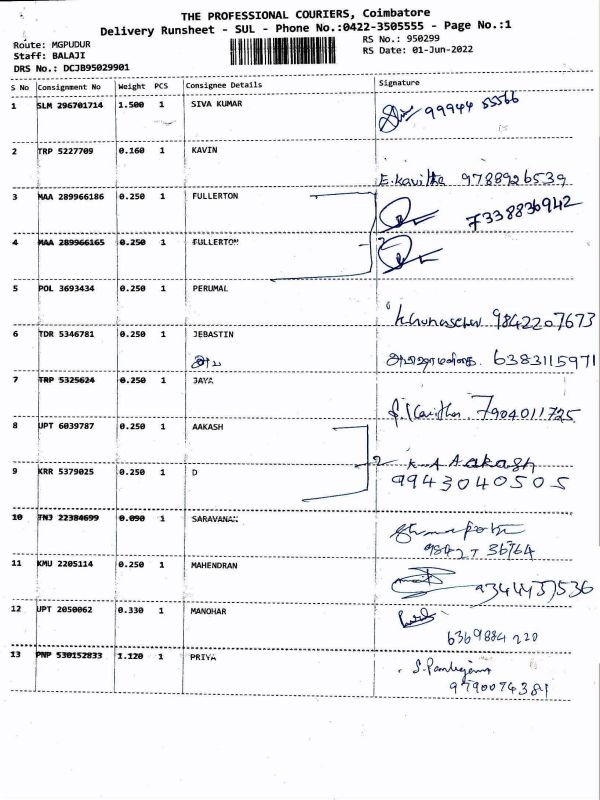 THE PROFESSIONAL COURIERS, Coimbatore
Delivery Runsheet - SUL - Phone No.:0422-3505555 - Page No.:1
Route: MGPUDUR
RS No.: 950299
Staff: BALAJI
RS Date: 01-Jun-2022
DRS No.: DCJB95029901
S No Consignment No Weight PCS Consignee Details Signature
1 SLM 296701714 1.500 1 SIVA KUMAR 99944 55566
2 TRP 5227709 0.160 1 KAVIN
E.Kavitha 9788926539
3 MAA 289966186 0.250 1 FULLERTON 7338836942
4 MAA 289966165 0.250 1 FULLERTON 2
5 POL 3693434 0.250 1 PERUMAL
9842207673
6 TDR 5346781 0.250 1 JEBASTIN
6383115971
7 TRP 5325624 0.250 1 JAYA
7904011725
8 UPT 6039787 0.250 1 AAKASH
2 K A Aakash
9 KRR 5379025 0.250 1 D 9943040505
10 TNJ 22384699 0.090 1 SARAVANAN
11 KMU 2205114 0.250 1 MAHENDRAN
12 UPT 2050062 0.330 1 MANOHAR
6369884220
13 PNP 530152833 1.120 1 PRIYA
9790074381